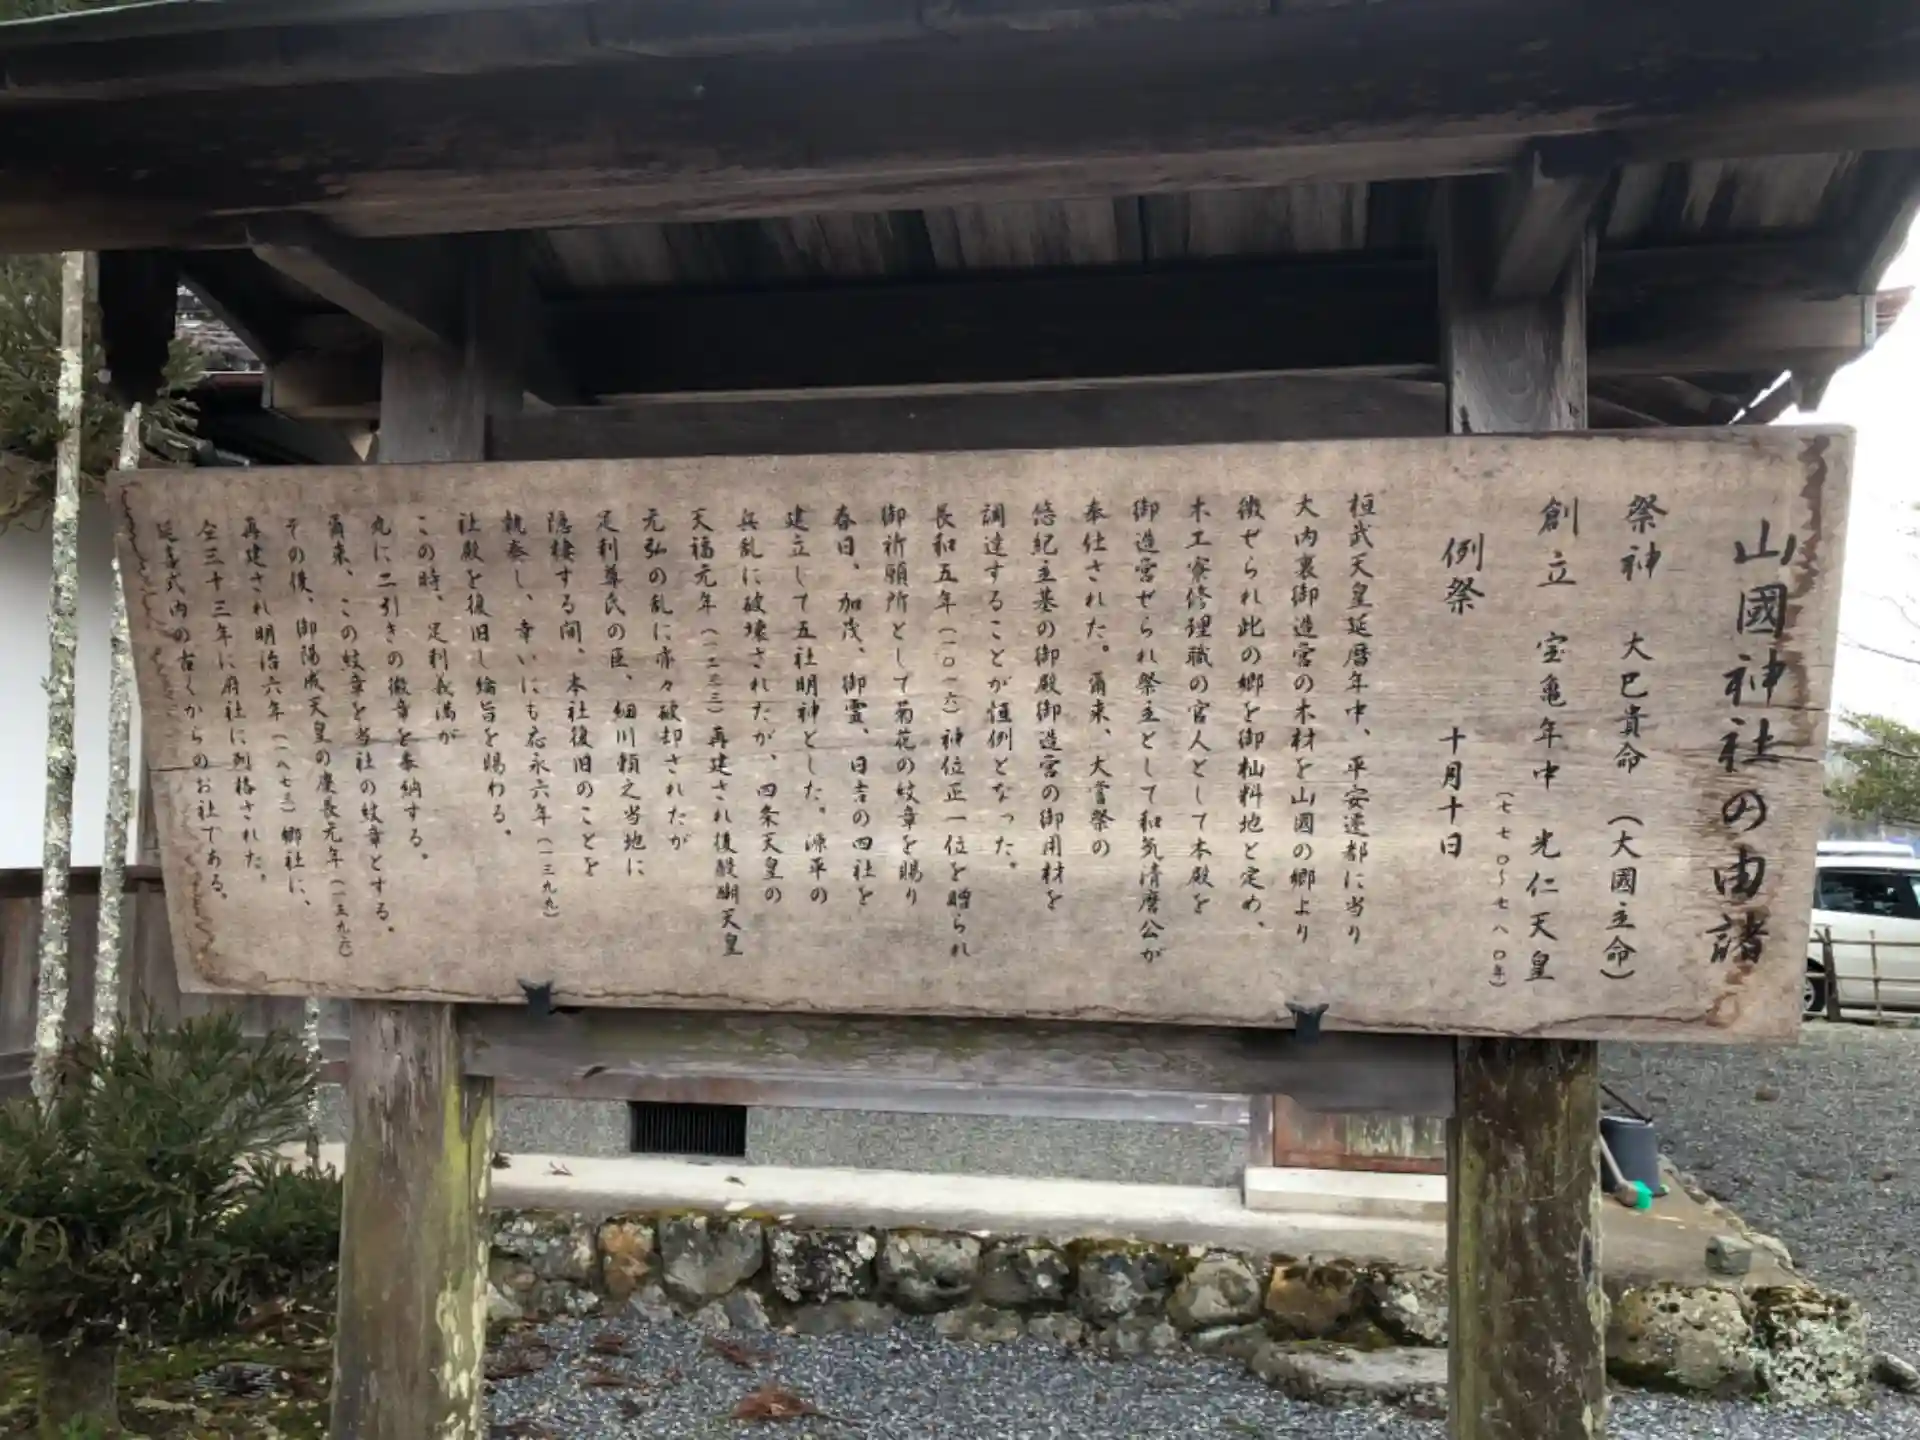 山國神社の由諸
祭神 大巳貴命(大國主命)
創立 宝亀年中 光仁天皇
(七七〇〜七八〇年)
例祭 十月十日
桓武天皇延暦年中、平安遷都に当り
大内裏御造宮の木材を山国の郷より
徴ぜられ此の郷を御杣料地と定め、
木工寮修理職の官人として本殿を
御造宮ぜられ祭主として和気清麿公が
奉仕された。爾来、大嘗祭の
悠紀主基の御殿御造宮の御用材を
調達することが恒例となった。
長和五年(一〇一六)神位正一位を贈られ
御祈願所として菊花の紋章を賜り
春日、加茂、御霊、日吉の四社を
建立して五社明神とした。源平の
兵乱に破壊されたが、四条天皇の
天福元年(一二三三)再建され後醍醐天皇
元弘の乱に亦々破却されたが
足利尊氏の臣、細川頼之当地に
隠棲する間、本社復旧のことを
執奏し、幸いにも応永六年(一三九九)
社殿を復旧し綸旨を賜わる。
この時、足利義満が
丸に二引きの徽章を奉納する。
爾来、この紋章を当社の紋章とする。
その後、御陽成天皇の慶長元年(一五九六)
再建され明治六年(一八七三)郷社に、
仝三十三年に府社に列格された。
延喜式内の古くからのお社である。